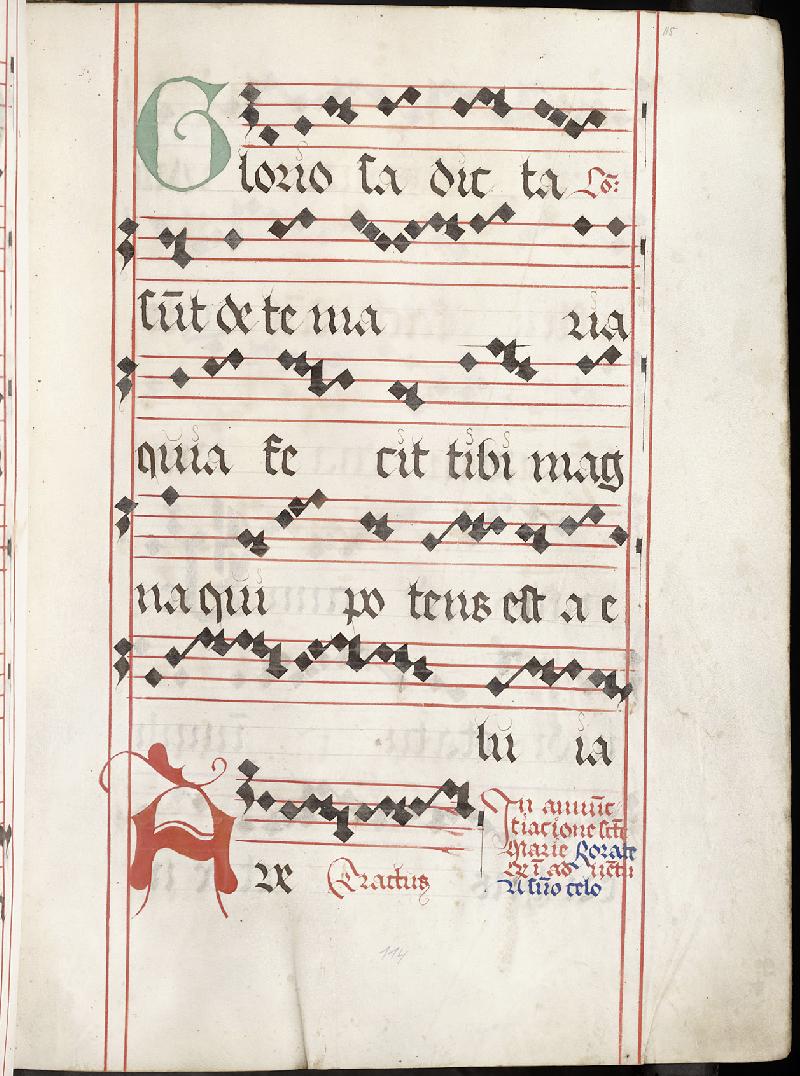 115
Glorio sa dic ta Co:
sūt de te ma ria
quia fe cit tibi mag
na qui po tens est a e
lu ia
Aue Tractus
In annūc
tiacione scte
Marie Rorate
celo
114